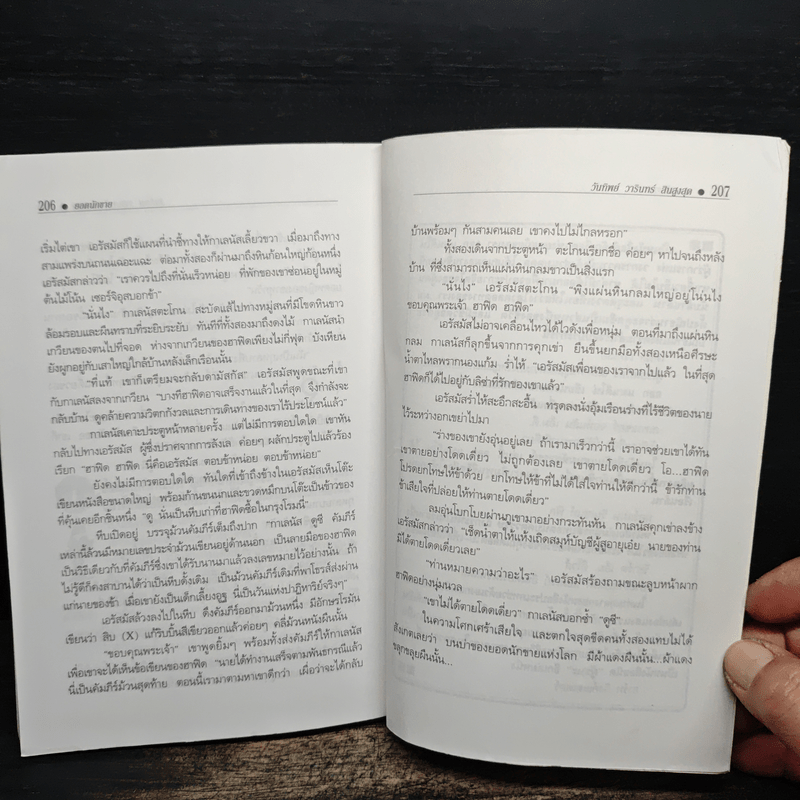 206 ● ยอดนักขาย
เริ่มไต่เขา เอรัสมัสก็ใช้แผนที่นำชี้ทางให้กาเลนัสเลี้ยวขวา เมื่อมาถึงทาง
สามแพร่งบนถนนเฉอะแฉะ ต่อมาทั้งสองก็ผ่านมาถึงหินก้อนใหญ่ก้อนหนึ่ง
เอรัสมัสกล่าวว่า “เราควรไปถึงที่นั่นเร็วหน่อย ที่พักของเขาซ่อนอยู่ในหมู่
ต้นไม้โน้น เซอร์จิอุสบอกข้า”
“นั่นไง” กาเลนัสตะโกน สะบัดแส้ไปทางหมู่สนที่มีโขดหินขาว
ล้อมรอบและผืนทรายที่ระยิบระยับ ทันทีที่ทั้งสองมาถึงดงไม้ กาเลนัสนำ
เกวียนของตนไปที่จอด ห่างจากเกวียนของฮาฟิดเพียงไม่กี่ฟุต บังเหียน
ยังผูกอยู่กับเสาใหญ่ใกล้บ้านหลังเล็กเรือนนั้น
“ที่แท้ เขาก็เตรียมจะกลับดามัสกัส” เอรัสมัสพูดขณะที่เขา
กับกาเลนัสลงจากเกวียน “บางทีฮาฟิดอาจเสร็จงานแล้วในที่สุด จึงกำลังจะ
กลับบ้าน ดูคล้ายความวิตกกังวลและการเดินทางของเราไร้ประโยชน์แล้ว”
กาเลนัสเคาะประตูหน้าหลายครั้ง แต่ไม่มีการตอบใดใด เขาหัน
กลับไปทางเอรัสมัส ผู้ซึ่งปราศจากการลังเล ค่อยๆ ผลักประตูไปแล้วร้อง
เรียก “ฮาฟิด ฮาฟิด นี่คือเอรัสมัส ตอบข้าหน่อย ตอบข้าหน่อย”
ยังคงไม่มีการตอบใดใด ทันใดที่เข้าถึงข้างในเอรัสมัสเห็นโต๊ะ
เขียนหนังสือขนาดใหญ่ พร้อมก้านขนนกและขวดหมึกบนโต๊ะเป็นข้าวของ
ที่คุ้นเคยอีกชิ้นหนึ่ง “ดู นั่นเป็นหีบเก่าที่ฮาฟิดซื้อในกรุงโรมนี่”
หีบเปิดอยู่ บรรจุม้วนคัมภีร์เต็มถึงปาก “กาเลนัส ดูซี คัมภีร์
เหล่านี้ล้วนมีหมายเลขประจำม้วนเขียนอยู่ด้านนอก เป็นลายมือของฮาฟิด
เป็นวิธีเดียวกับที่คัมภีร์ซึ่งเขาได้รับนานมาแล้วลงเลขหมายไว้อย่างนั้น ถ้า
ไม่รู้ดีก็คงสาบานได้ว่าเป็นหีบดั้งเดิม เป็นม้วนคัมภีร์เดิมที่พาโธรส์ส่งผ่าน
แก่นายของข้า เมื่อเขายังเป็นเด็กเลี้ยงอูฐ นี่เป็นวันแห่งปาฏิหาริย์จริงๆ”
เอรัสมัสล้วงลงไปในหีบ ดึงคัมภีร์ออกมาม้วนหนึ่ง มีอักษรโรมัน
เขียนว่า สิบ (X) แก้ริบบิ้นสีเขียวออกแล้วค่อยๆ คลี่ม้วนหนังผืนนั้น
“ขอบคุณพระเจ้า” เขาพูดยิ้มๆ พร้อมทั้งส่งคัมภีร์ให้กาเลนัส
เพื่อเขาจะได้เห็นข้อเขียนของฮาฟิด “นายได้ทำงานเสร็จตามพันธกรณีแล้ว
นี่เป็นคัมภีร์ม้วนสุดท้าย ตอนนี้เรามาตามหาเขาดีกว่า เผื่อว่าจะได้กลับ
วันทิพย์ วารินทร์ สินสูงสุด ● 207
บ้านพร้อมๆ กันสามคนเลย เขาคงไปไม่ไกลหรอก”
ทั้งสองเดินจากประตูหน้า ตะโกนเรียกชื่อ ค่อยๆ หาไปจนถึงหลัง
บ้าน ที่ซึ่งสามารถเห็นแผ่นหินกลมขาวเป็นสิ่งแรก
“นั่นไง” เอรัสมัสตะโกน “พิงแผ่นหินกลมใหญ่อยู่โน่นไง
ขอบคุณพระเจ้า ฮาฟิด ฮาฟิด”
เอรัสมัสไม่อาจเคลื่อนไหวได้ไวดั่งเพื่อหนุ่ม ตอนที่มาถึงแผ่นหิน
กลม กาเลนัสก็ลุกขึ้นจากการคุกเข่า ยืนขึ้นยกมือทั้งสองเหนือศีรษะ
น้ำตาไหลพรากนองแก้ม ร่ำไห้ “เอรัสมัสเพื่อนของเราจากไปแล้ว ในที่สุด
ฮาฟิดก็ได้ไปอยู่กับลิซ่าที่รักของเขาแล้ว”
เอรัสมัสร่ำไห้สะอึกสะอื้น ทรุดลงนั่งอุ้มเรือนร่างที่ไร้ชีวิตของนาย
ไว้ระหว่างอกเขย่าไปมา
“ร่างของเขายังอุ่นอยู่เลย ถ้าเรามาเร็วกว่านี้ เราอาจช่วยเขาได้ทัน
เขาตายอย่างโดดเดี่ยว ไม่ถูกต้องเลย เขาตายโดดเดี่ยว โอ...ฮาฟิด
โปรดยกโทษให้ข้าด้วย ยกโทษให้ข้าที่ไม่ได้ใส่ใจท่านให้ดีกว่านี้ ข้ารักท่าน
ข้าเสียใจที่ปล่อยให้ท่านตายโดดเดี่ยว”
ลมอุ่นโบกโบยผ่านภูเขามาอย่างกระทันหัน กาเลนัสคุกเข่าลงข้าง
เอรัสมัสกล่าวว่า “เช็ดน้ำตาให้แห้งเถิดสมุห์บัญชีผู้สูงอายุเอ๋ย นายของท่าน
มิได้ตายโดดเดี่ยวเลย”
“ท่านหมายความว่าอะไร” เอรัสมัสร้องถามขณะลูบหน้าผาก
ฮาฟิดอย่างนุ่มนวล
“เขาไม่ได้ตายโดดเดี่ยว” กาเลนัสบอกซ้ำ “ดูซี”
ในความโศกเศร้าเสียใจ และตกใจสุดขีดคนทั้งสองแทบไม่ได้
สังเกตเลยว่า บนบ่าของยอดนักขายแห่งโลก มีผ้าแดงผืนนั้น...ผ้าแดง
ขลุกขลุยผืนนั้น...